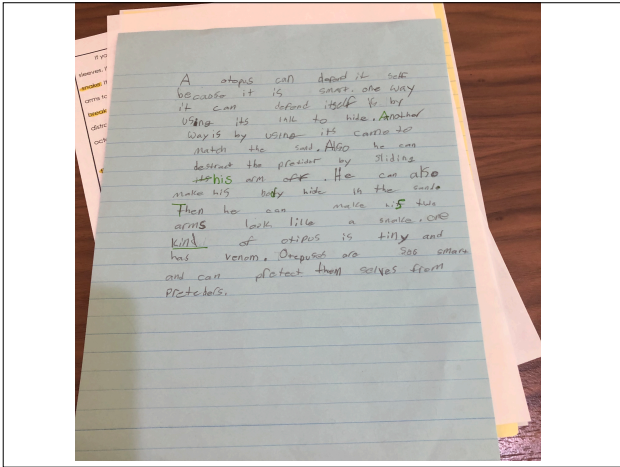 If yo
sleeves. 
snake. 
arms to
break
distra
oct
A otopus can depend it self
because it is smart. one way
it can defond itself is by
using its ink to hide. Another
way is by using its camo to
match the sand. Also he can
destract the preider by sliding
his arm off. He can also
make his body hide in the sand.
Then he can make his two
arms look like a snake. one
kind of otipus is tiny and
has venom. Otopuses are soo smare
and can protect them selves from
preteders.